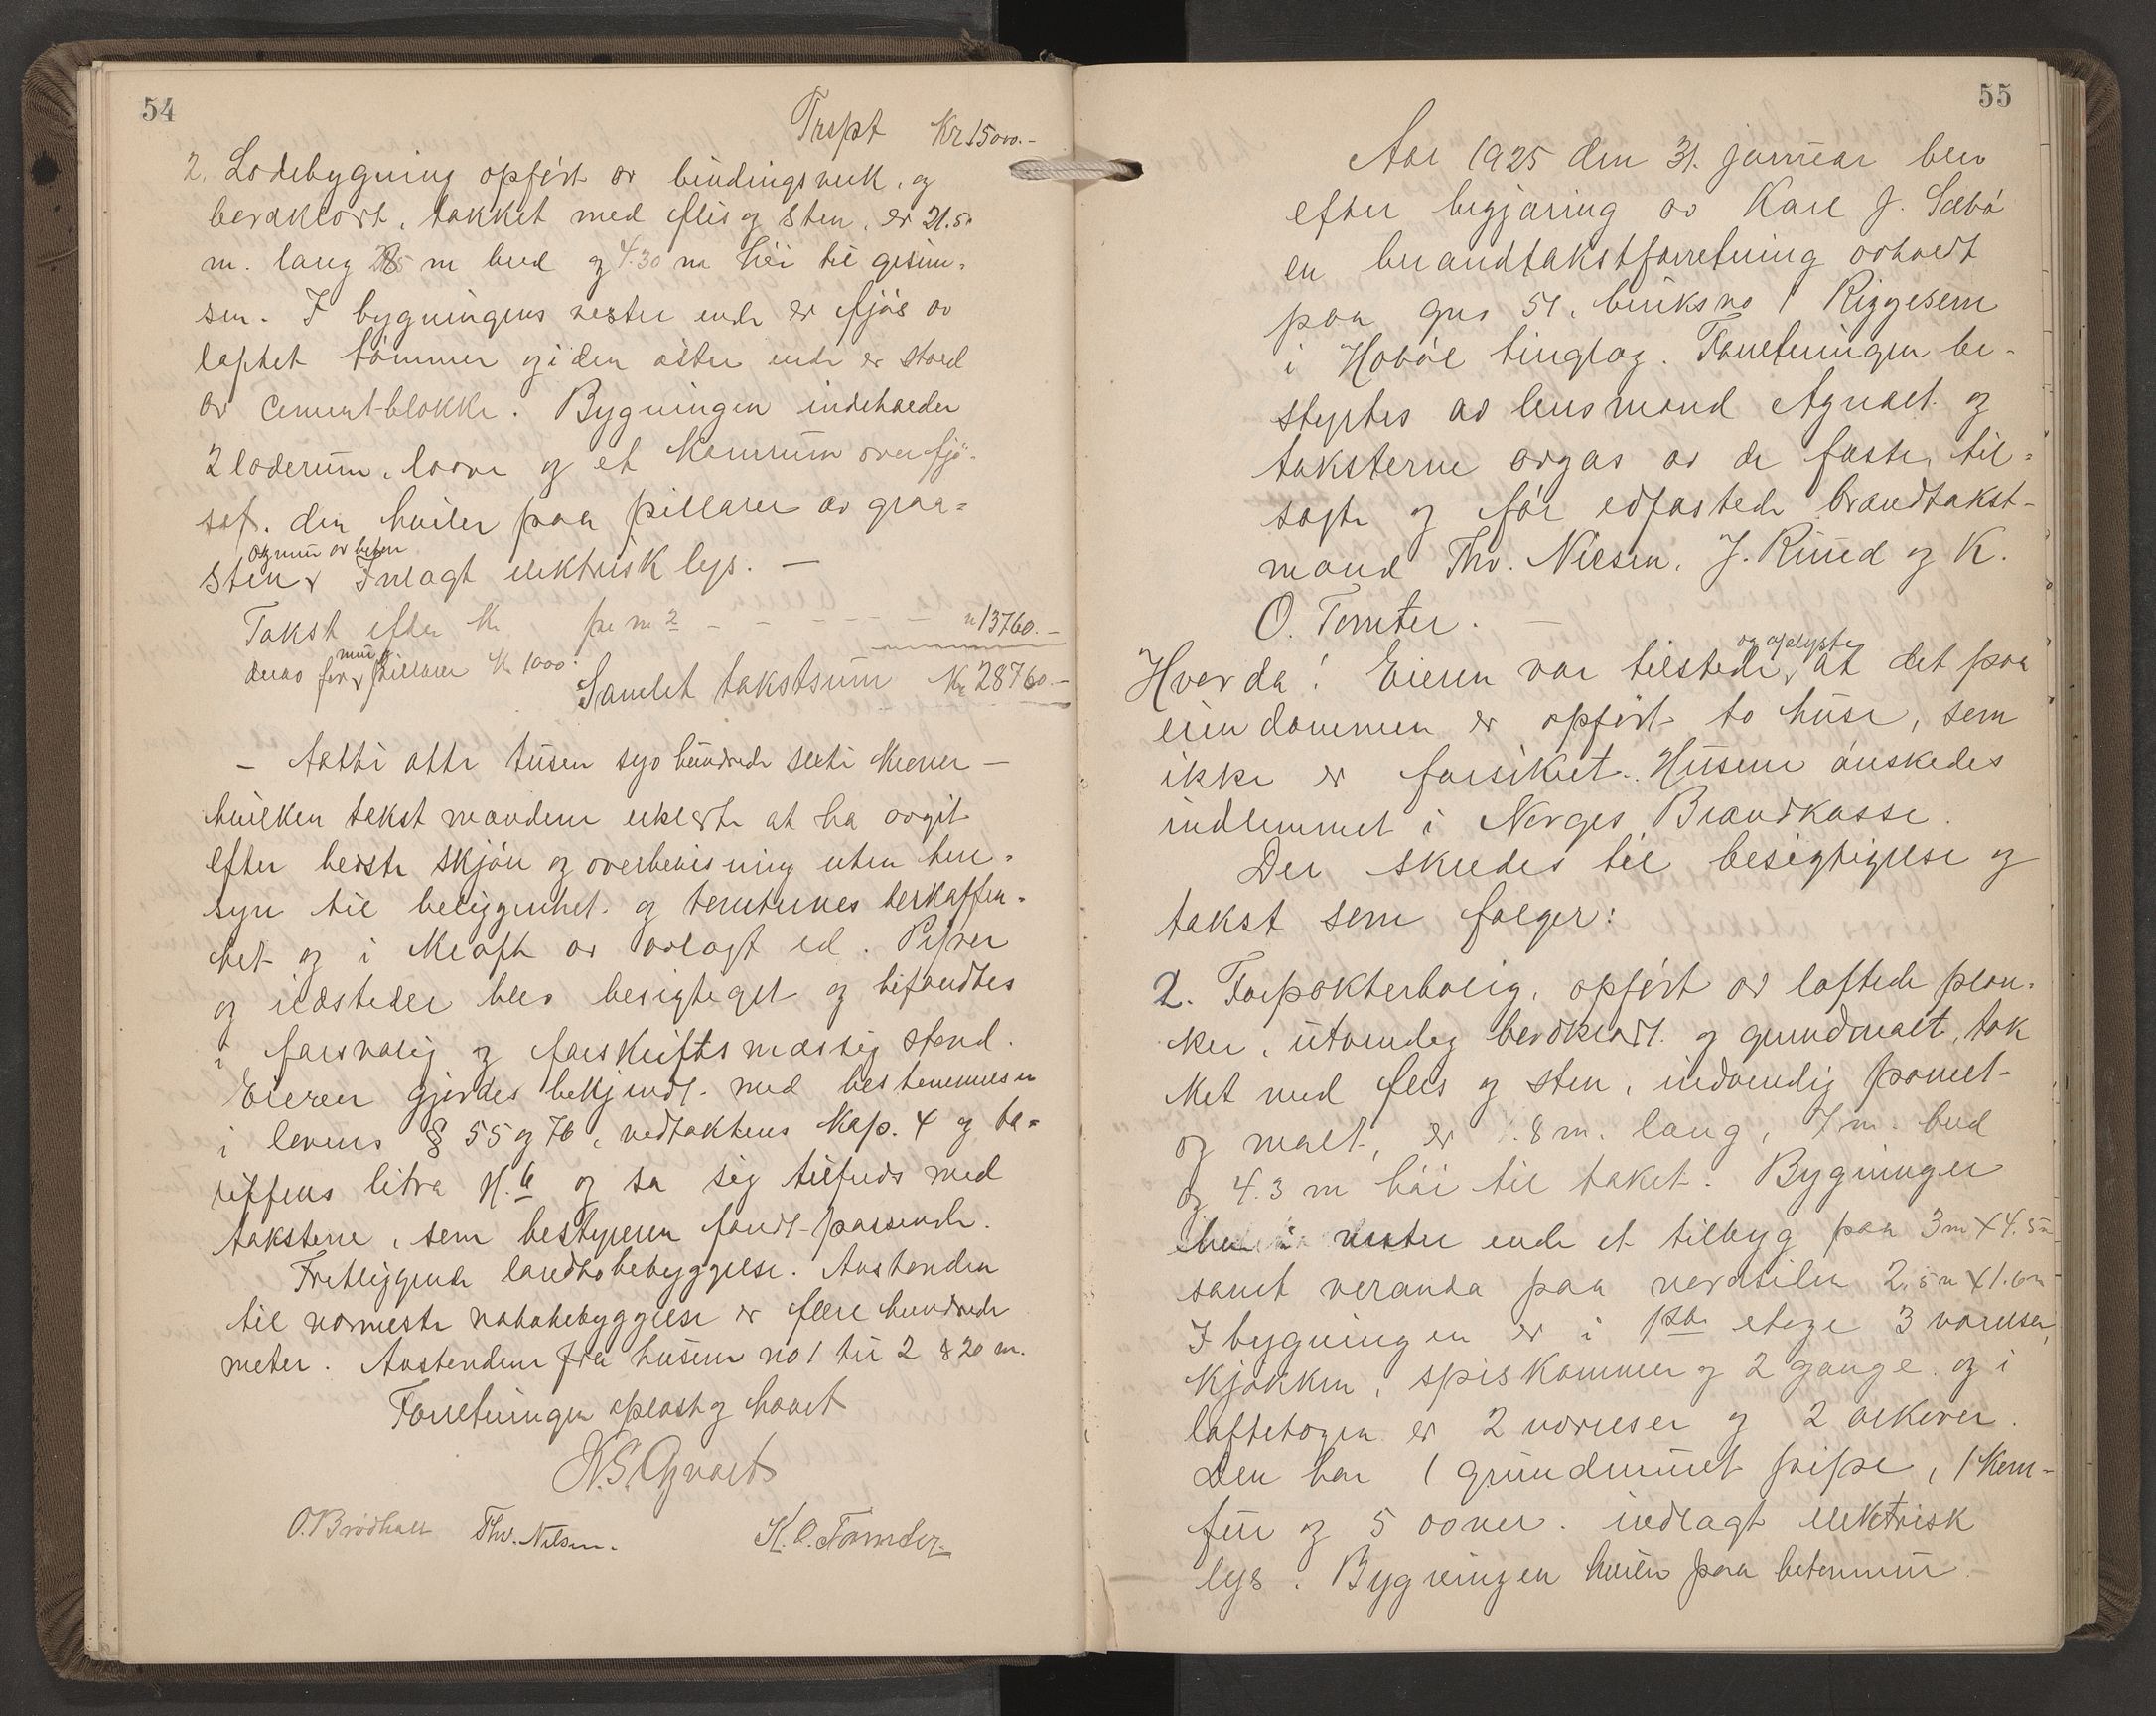 54
Trspt Kr 15000.-
2. Lodebygning opført av bindingsverk, og
bordklædt, tækket med flis og sten, er 21.50
m. lang m bred og 4.30 m høi til gesim-
sen. I bygningens vestre ende er fjøs av
laftet tømmer og i den østre ende er stald
av cement-blokke. Bygningen indeholder
2 loderum, laave og et rum over fjø-
set. den hviler paa pillarer av graa-
og mur av beton
sten. Inlagt elektrisk lys. —
Takst efter Kr pr m2 - - - - - - " 13760.-
mur og
derav for pillarer Kr 1000.-
Samlet takstsum Kr 28760.-
- otte tusen syv hundrede seksti kroner -
hvilken takst mændene erklærte at ha avgit
efter bedste skjøn og overbevisning uten hen-
syn til beliggenhet og tomternes beskaffen-
het og i kraft av avlagt ed. Piper
og ildsteder blev besigtiget og befandtes
i forsvarlig og forskriftsmæssig stand.
Eieren gjordes bekjendt med bestemmelsen
i lovens § 55 og 76, vedtektens kap. 4 og ta-
riffens litra H. 6 og sa sig tilfreds med
taksterne, som bestyreren fandt passende.
Fritliggende landhobebyggelse. Avstanden
til nærmeste nabobebyggelse er flere hundrede
meter. Avstanden fra husene no 1 til 2 820 m.
Forretningen oplæst og hævet
N.S. Agnalt
O. Brødhall Thv. Nilsen. K. O. Tomter.
55
Aar 1925 den 31. januar blev
efter begjæring av Karl J. Sæbø
en brandtakstforretning avholdt
paa gno 51, bruksno 1 Riggesem
i Hobøl tinglag. Forretningen be-
styrtes av lensmand Agnalt og
taksterne avgas av de faste, til-
sagte og før edfæstede brandtakst-
mænd Thv. Nilsen, J. Ruud og K.
O. Tomter. —
og oplyste
Hvorda! Eieren var tilstede, at det paa
eiendommen er opført to huse, som
ikke er forsikret. Husene ønskedes
indlemmet i Norges Brandkasse.
Der skredes til besigtigelse og
takst som følger:
2. Forpakterbolig, opført av laftede plan-
ker, utvendig bordklædt og grundmalt, tæk
ket med flis og sten, indvendig panelt
og malt, er 8 m. lang, 7 m. bred
og 4.3 m høi til taket. Bygningen
har i vestre ende et tilbyg paa 3 m X 4.5 m
samt veranda paa nordsiden 2.5 m X 1.6 m
I bygningen er i 1ste etage 3 værelser,
kjøkken, spiskammer og 2 gange og i
loftetagen er 2 værelser og 2 arkover.
Den har 1 grundmuret pipe, 1 kom-
fur og 5 ovner. indlagt elektrisk
lys. Bygningen hviler paa betonmur.